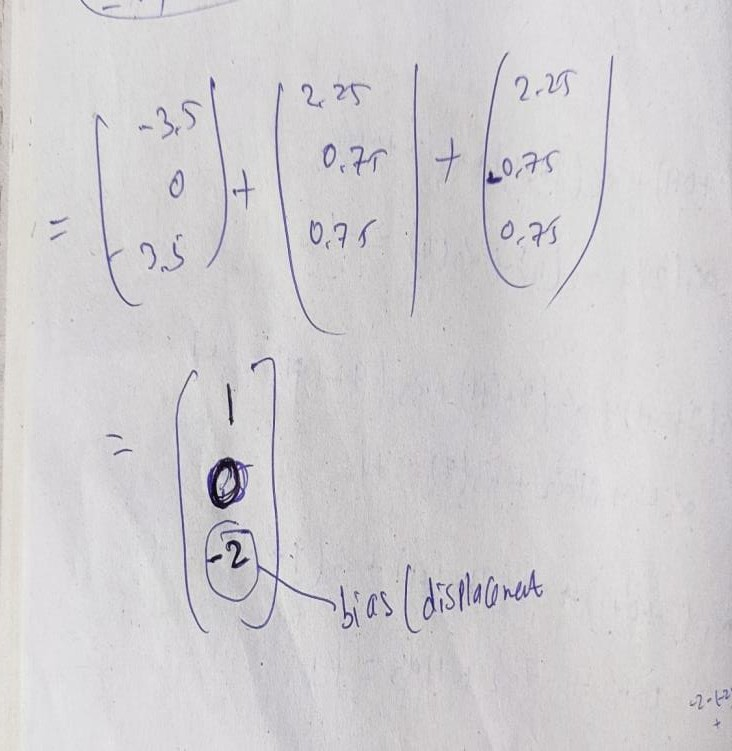 = ( -3.5 ) + ( 2.25 ) + ( 2.25 )
( 0 ) ( 0.75 ) ( -0.75 )
( -3.5 ) ( 0.75 ) ( 0.75 )
= [ 1 ]
[ 0 ]
[ -2 ]
bias (displacement